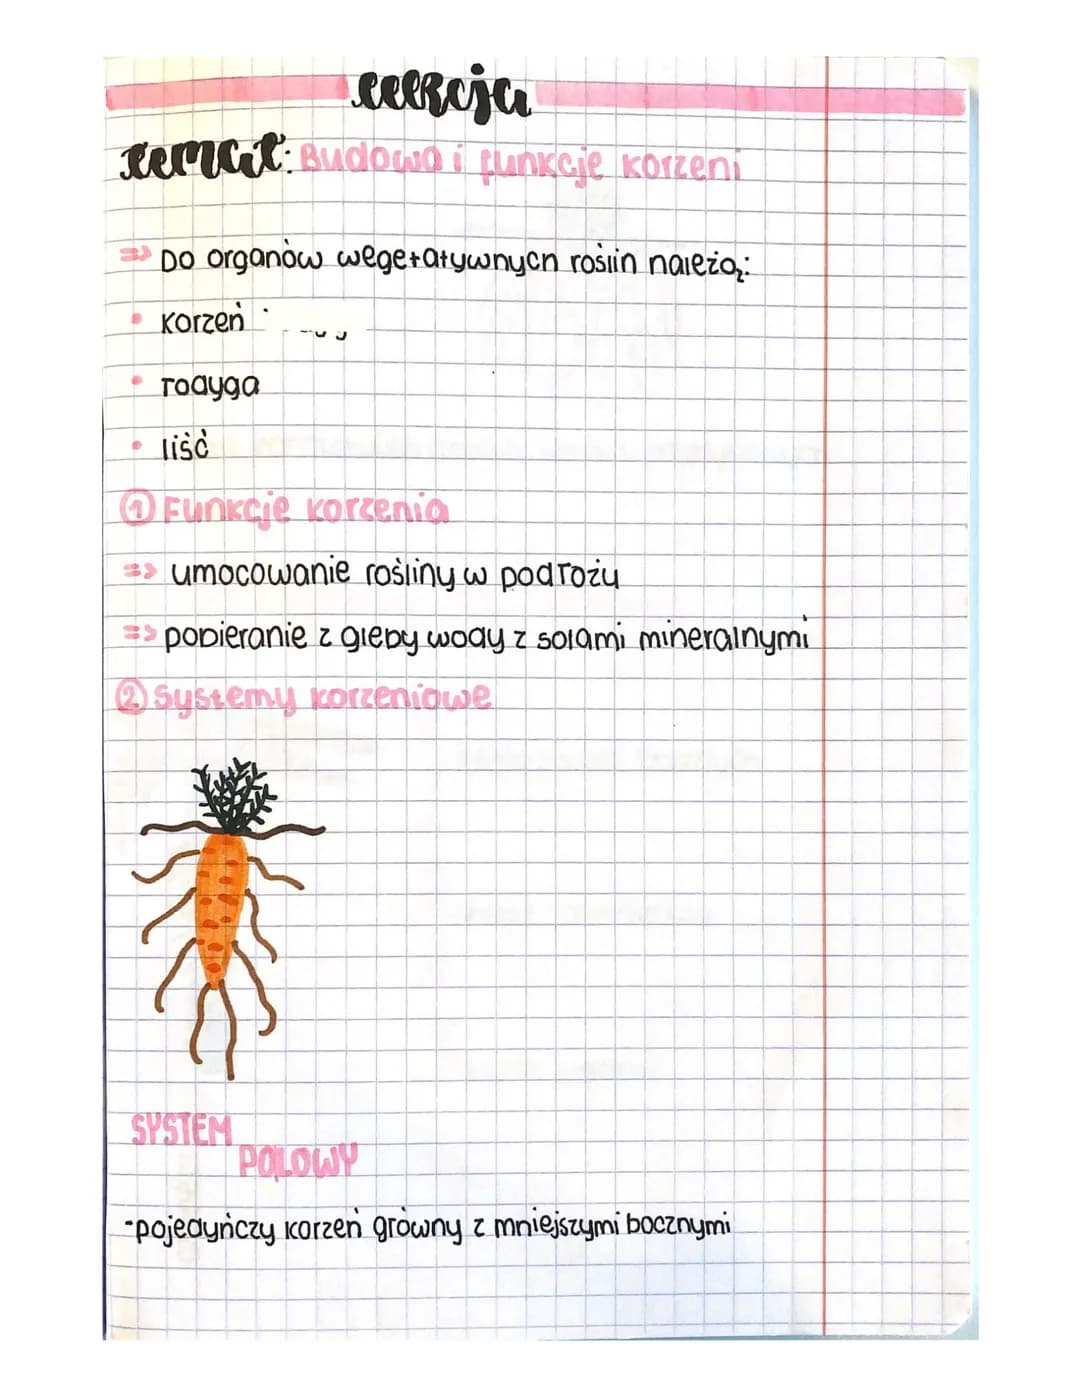 Lekcja
Temat: Budowa i funkcje korzeni
=> Do organów wegetatywnych roślin należą:
• korzeń
• łodyga
• liść
① Funkcje korzenia
=> umocowanie rośliny w podłożu
=> pobieranie z gleby wody z solami mineralnymi
② Systemy korzeniowe
SYSTEM
PALOWY
-pojedyńczy korzeń główny z mniejszymi bocznymi